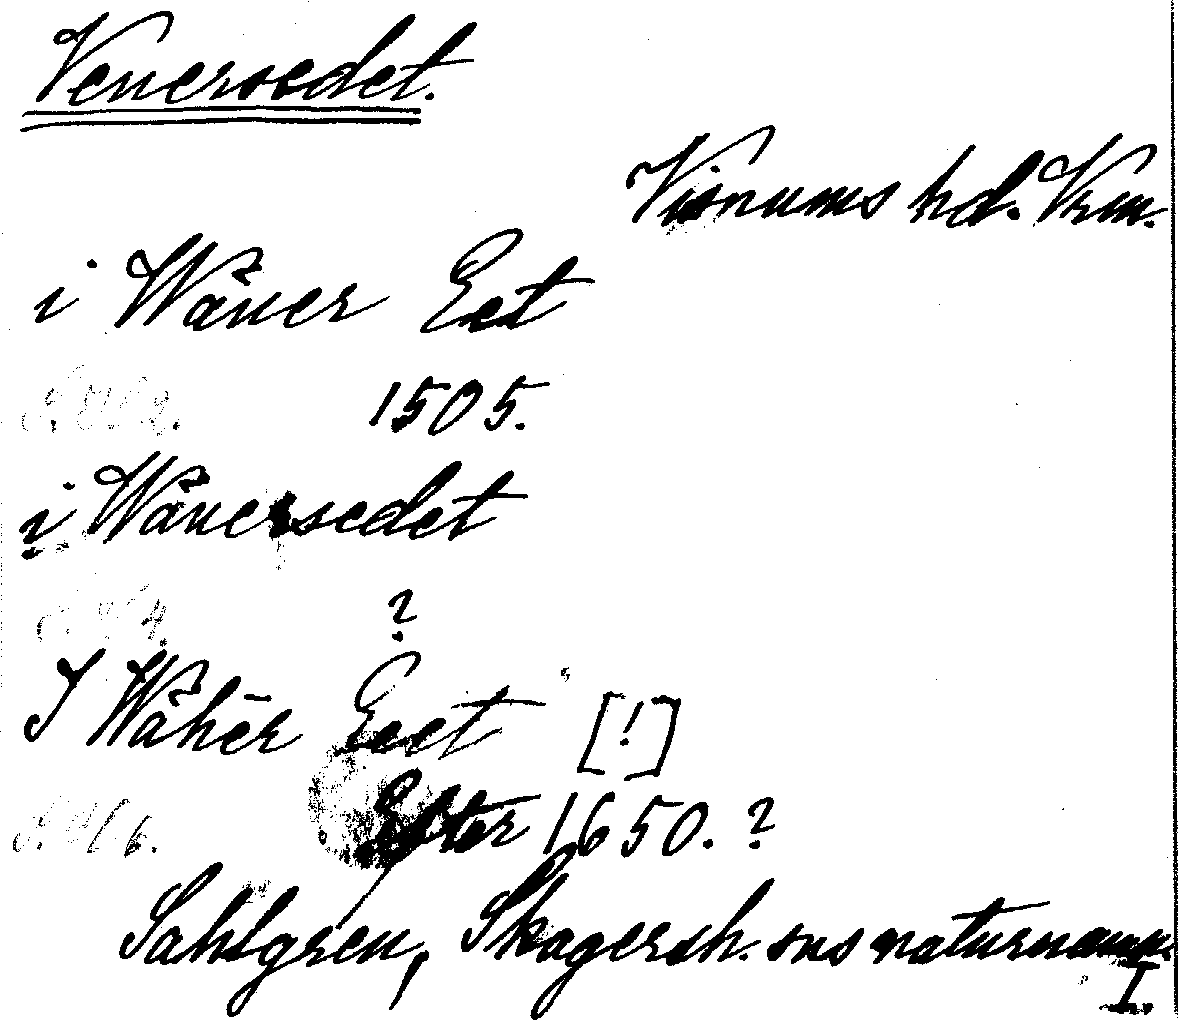 Venersedet.
Visnums hd. Vrm.
i Wäner Eet
1505.
i Wänersedet
?
I Wähēr Eeet [!]
Efter 1650. ?
Sahlgren, Skagersh. sns naturnamn.
I.